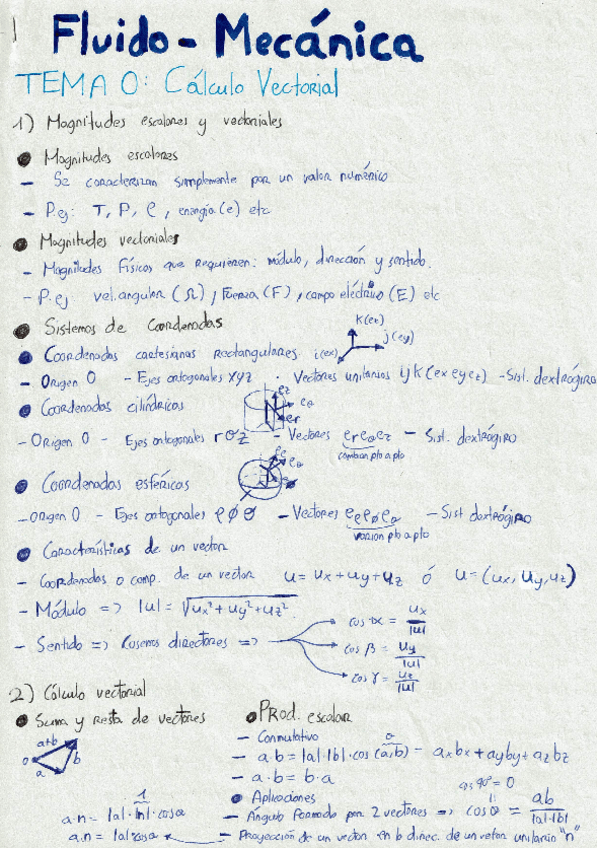 1
Fluido - Mecánica
TEMA 0: Cálculo Vectorial
1) Magnitudes escalares y vectoriales
● Magnitudes escalares
- Se caracterizan simplemente por un valor numérico
- P.ej: T, P, ρ, energía (e) etc
● Magnitudes vectoriales
- Magnitudes Físicas que requieren: módulo, dirección y sentido.
- P.ej vel. angular (Ω), Fuerza (F), campo eléctrico (E) etc
● Sistemas de Coordenadas
k(ez)
j(ey)
● Coordenadas cartesianas rectangulares i(ex)
- Origen O - Ejes ortogonales xyz · Vectores unitarios ijk (ex ey ez) - Sist. dextrógiro
● Coordenadas cilíndricas
ez
eθ
er
- Origen O - Ejes ortogonales rθz - Vectores er eθ ez - Sist. dextrógiro
cambian pto a pto
● Coordenadas esféricas
- Origen O - Ejes ortogonales ρ∅θ - Vectores eρ e∅ eθ - Sist dextrógiro
varían pto a pto
● Características de un vector
- Coordenadas o comp. de un vector u = ux + uy + uz ó u = (ux, uy, uz)
- Módulo => |u| = √ux² + uy² + uz²
- Sentido => Cosenos directores =>
cos α = ux/|u|
cos β = uy/|u|
cos γ = uz/|u|
2) Cálculo vectorial
● Suma y resta de vectores
a+b
o
a
b
● Prod. escalar
- Conmutativo
- a·b = |a|·|b|·cos (a,b) - axbx + ayby + azbz
- a·b = b·a
● Aplicaciones
cos 90º = 0
- Ángulo formado por 2 vectores => cos θ = ab/|a|·|b|
1
a.n = |a|·|n|·cosα
a.n = |a|cosα
- Proyección de un vector en b direc. de un vetor unitario "n"